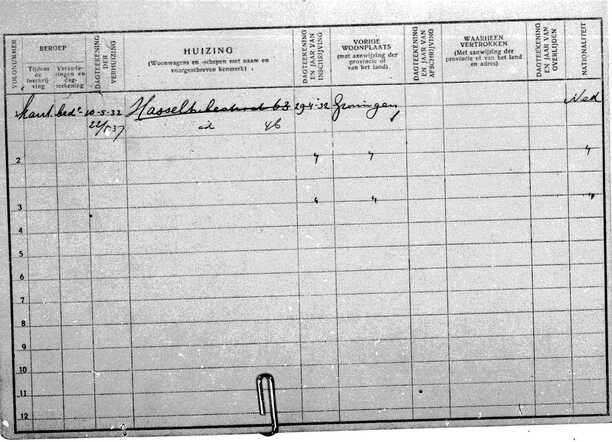 VOLGNUMMER
BEROEP
Tijdens de inschrijving
Veranderingen en dagteekening
DAGTEEKENING DER VERHUIZING
HUIZING
(Woonwagens en -schepen met naam en
voorgeschreven kenmerk)
DAGTEEKENING EN JAAR VAN INSCHRIJVING
VORIGE
WOONPLAATS
(met aanwijzing der
provincie of van het land)
DAGTEEKENING EN JAAR VAN AFSCHRIJVING
WAARHEEN
VERTROKKEN
(Met aanwijzing der
provincie of van het land
en adres)
DAGTEEKENING EN JAAR VAN OVERLIJDEN
NATIONALITEIT
bed. 10-5-32 63 29-4-32 Groningen Ned
22/5-37 id 46
2 " " "
3 " " "
4
5
6
7
8
9
10
11
12